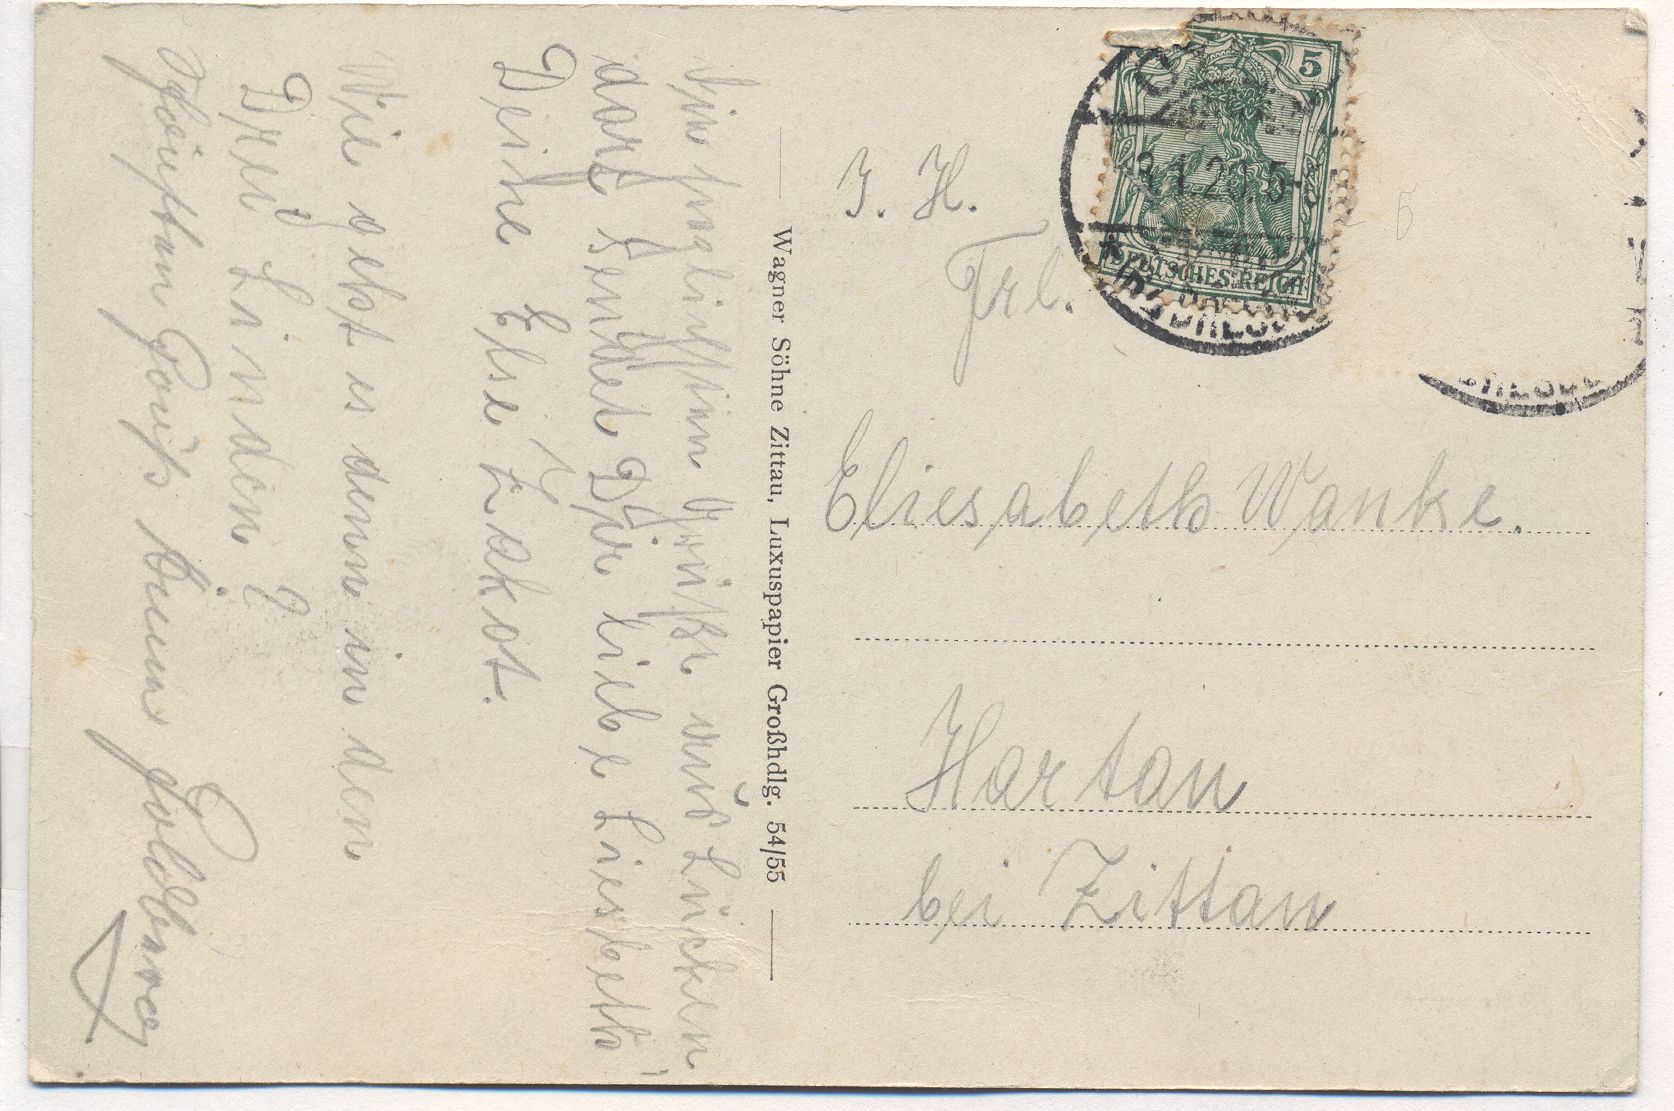 Die herzlichsten Grüße aus Lückendorf
sendet Dir liebe Liesbeth
Deine Else Lakot.
Wie geht es denn in den
Drei Linden ?
Wagner Söhne Zittau, Luxuspapier Großhdlg. 54/55
5
DEUTSCHES REICH
J. H.
Frl.
Eliesabeth Wanke.
Hartau
bei Zittau
5